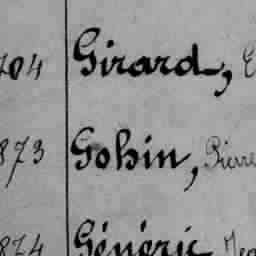 704 Girard, E
873 Gohin, Pierre
874 Généric Jea